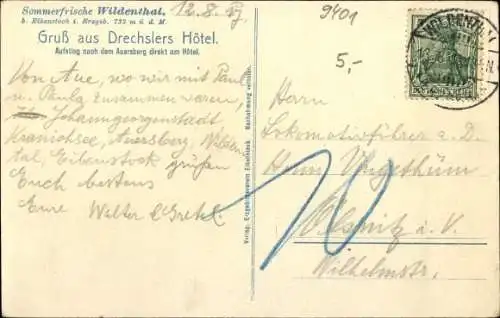 Sommerfrische Wildenthal,
b. Eibenstock i. Erzgeb. 732 m ü. d. M.
12.8.
Gruß aus Drechslers Hôtel.
Aufstieg nach dem Auersberg direkt am Hôtel.
Von Aue, wo wir mit Paul
u. Paula zusammen waren,
Johanngeorgenstadt
Kranichsee, Auersberg, Wilden-
tal, Eibenstock grüßen
Euch bestens
Eure Walter & Gretel.
Verlag Erzgebirgsverein Eibenstock
Nachahmung verboten
9401
5,-
WILDENTHAL
DEUTSCHES REICH
Herrn
Lokomotivführer a. D.
Herm. Ungethüm
Oelsnitz i. V.
Wilhelmstr.
10